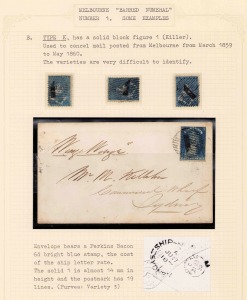 MELBOURNE "BARRED NUMERAL"
NUMBER 1. SOME EXAMPLES
B. TYPE E, has a solid block figure 1 (Killer).
Used to cancel mail posted from Melbourne from March 1859
to May 1860.
The varieties are very difficult to identify.
"Wave Wenge"
Mr W. Kettle
Commercial Wharf
Sydney
Envelope bears a Perkins Bacon
6d bright blue stamp, the cost
of the ship letter rate.
The solid 1 is almost 14 mm in
height and the postmark has 19
lines. (Purves: Variety 3)
SHIP